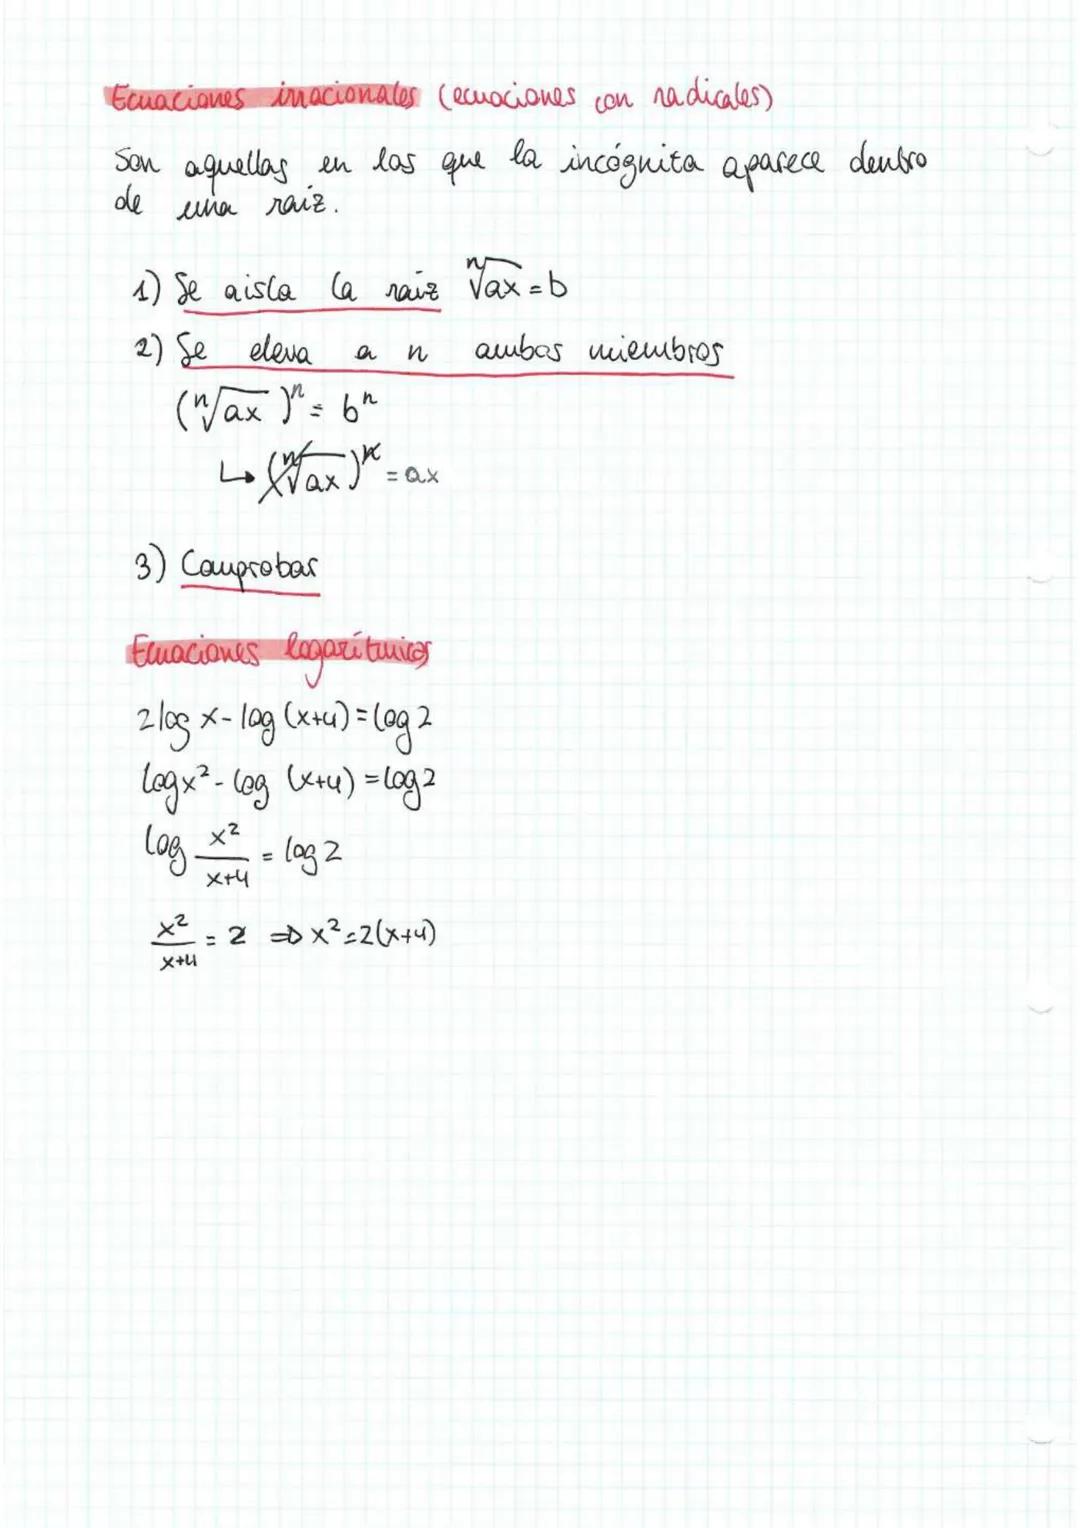 Ecuaciones irracionales (ecuaciones con radicales)
Son aquellas en las que la incógnita aparece dentro
de una raiz.
1) Se aisla la raiz ⁿ√ax = b
2) Se eleva a n ambos miembros
(ⁿ√ax)ⁿ = bⁿ
↳ (ⁿ√ax)ⁿ = ax
3) Comprobar
Ecuaciones logarítmicas
2 log x - log (x+4) = log 2
log x² - log (x+4) = log 2
log x²/(x+4) = log 2
x²/(x+4) = 2 ⇒ x² = 2(x+4)